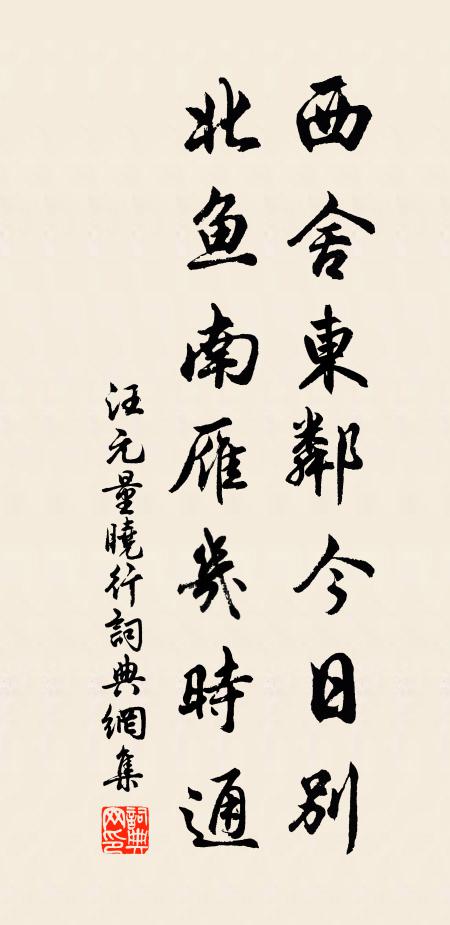 西舍東鄰今日別
北鱼南雁幾時通
汪元量曉行詞典網集
詞典
网印